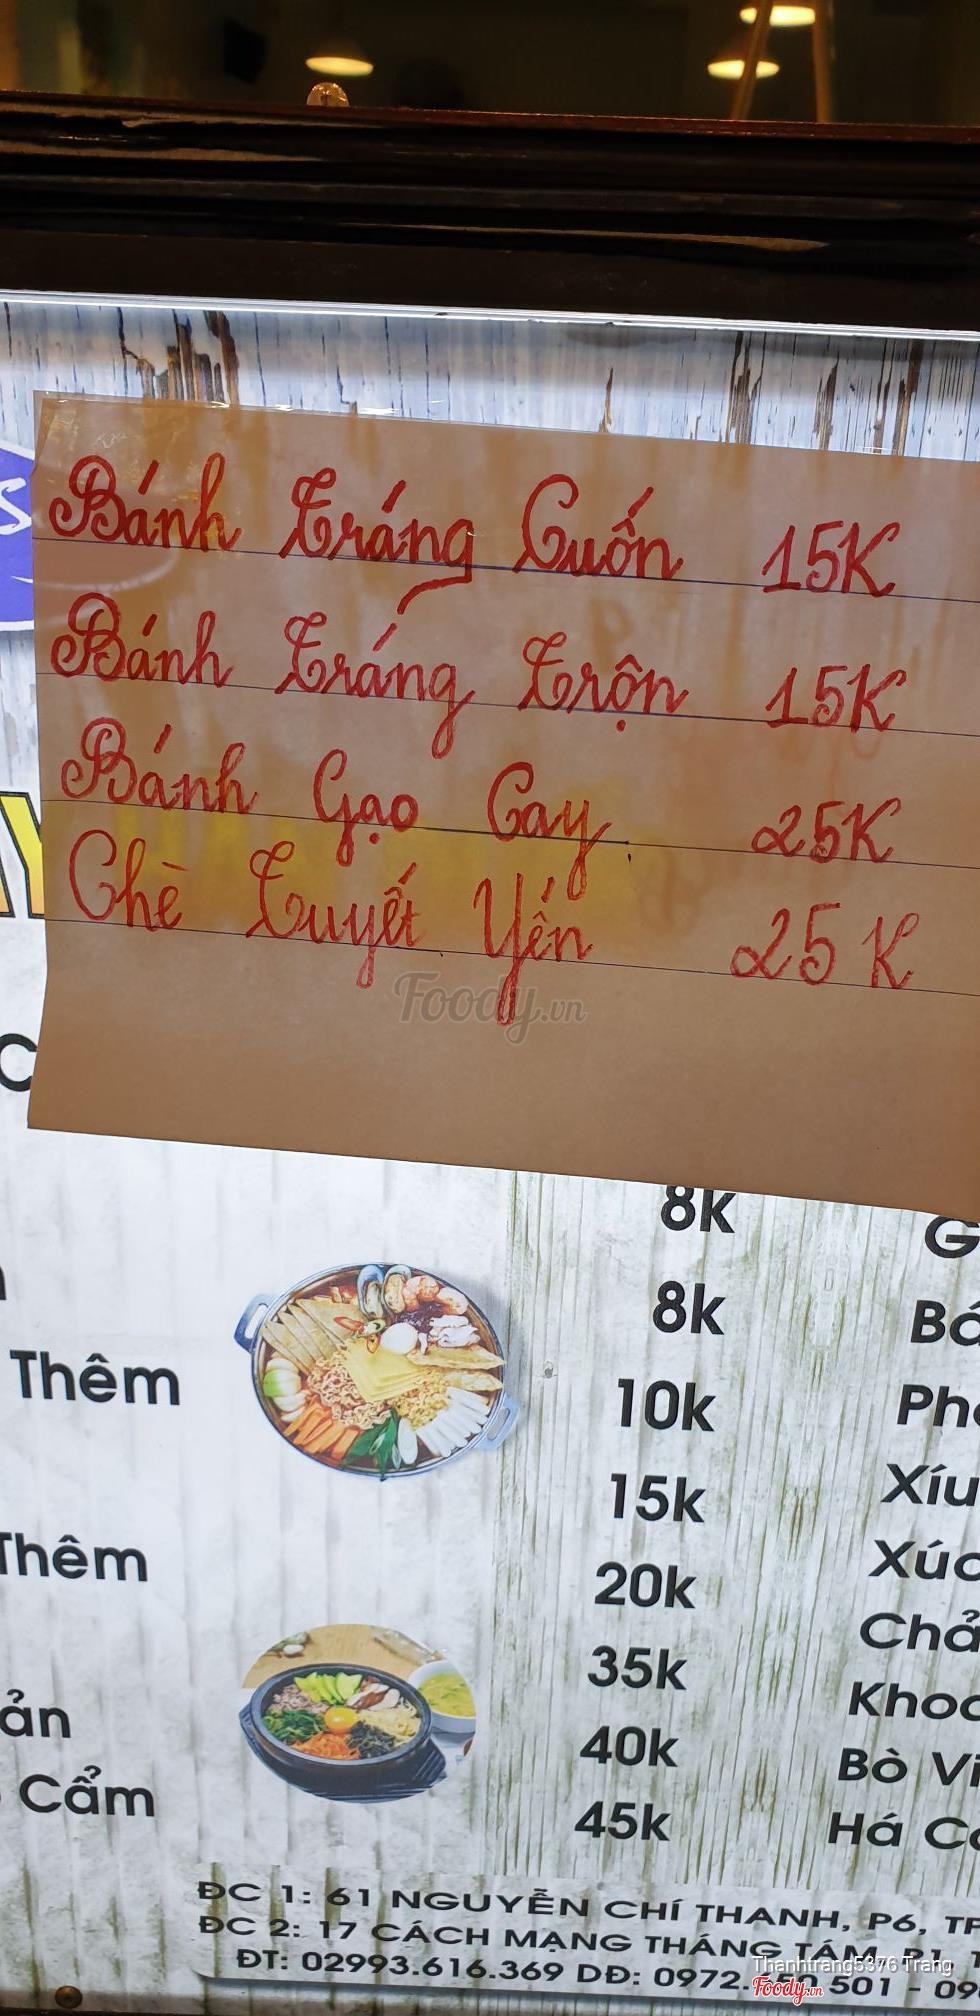 Bánh Tráng Cuốn 15K
Bánh Tráng Trộn 15K
Bánh Gạo Cay 25K
Chè Tuyết Yến 25K
Foody.vn
8k
8k
Thêm 10k
15k
Thêm 20k
35k
40k
Cẩm 45k
Xíu
Bò
Há
ĐC 1: 61 NGUYỄN CHÍ THANH, P6,
ĐC 2: 17 CÁCH MẠNG THÁNG TÁM, P1,
ĐT: 02993.616.369 DĐ: 0972. 501 - 09
Thanhtrang5376 Trang
Foody.vn